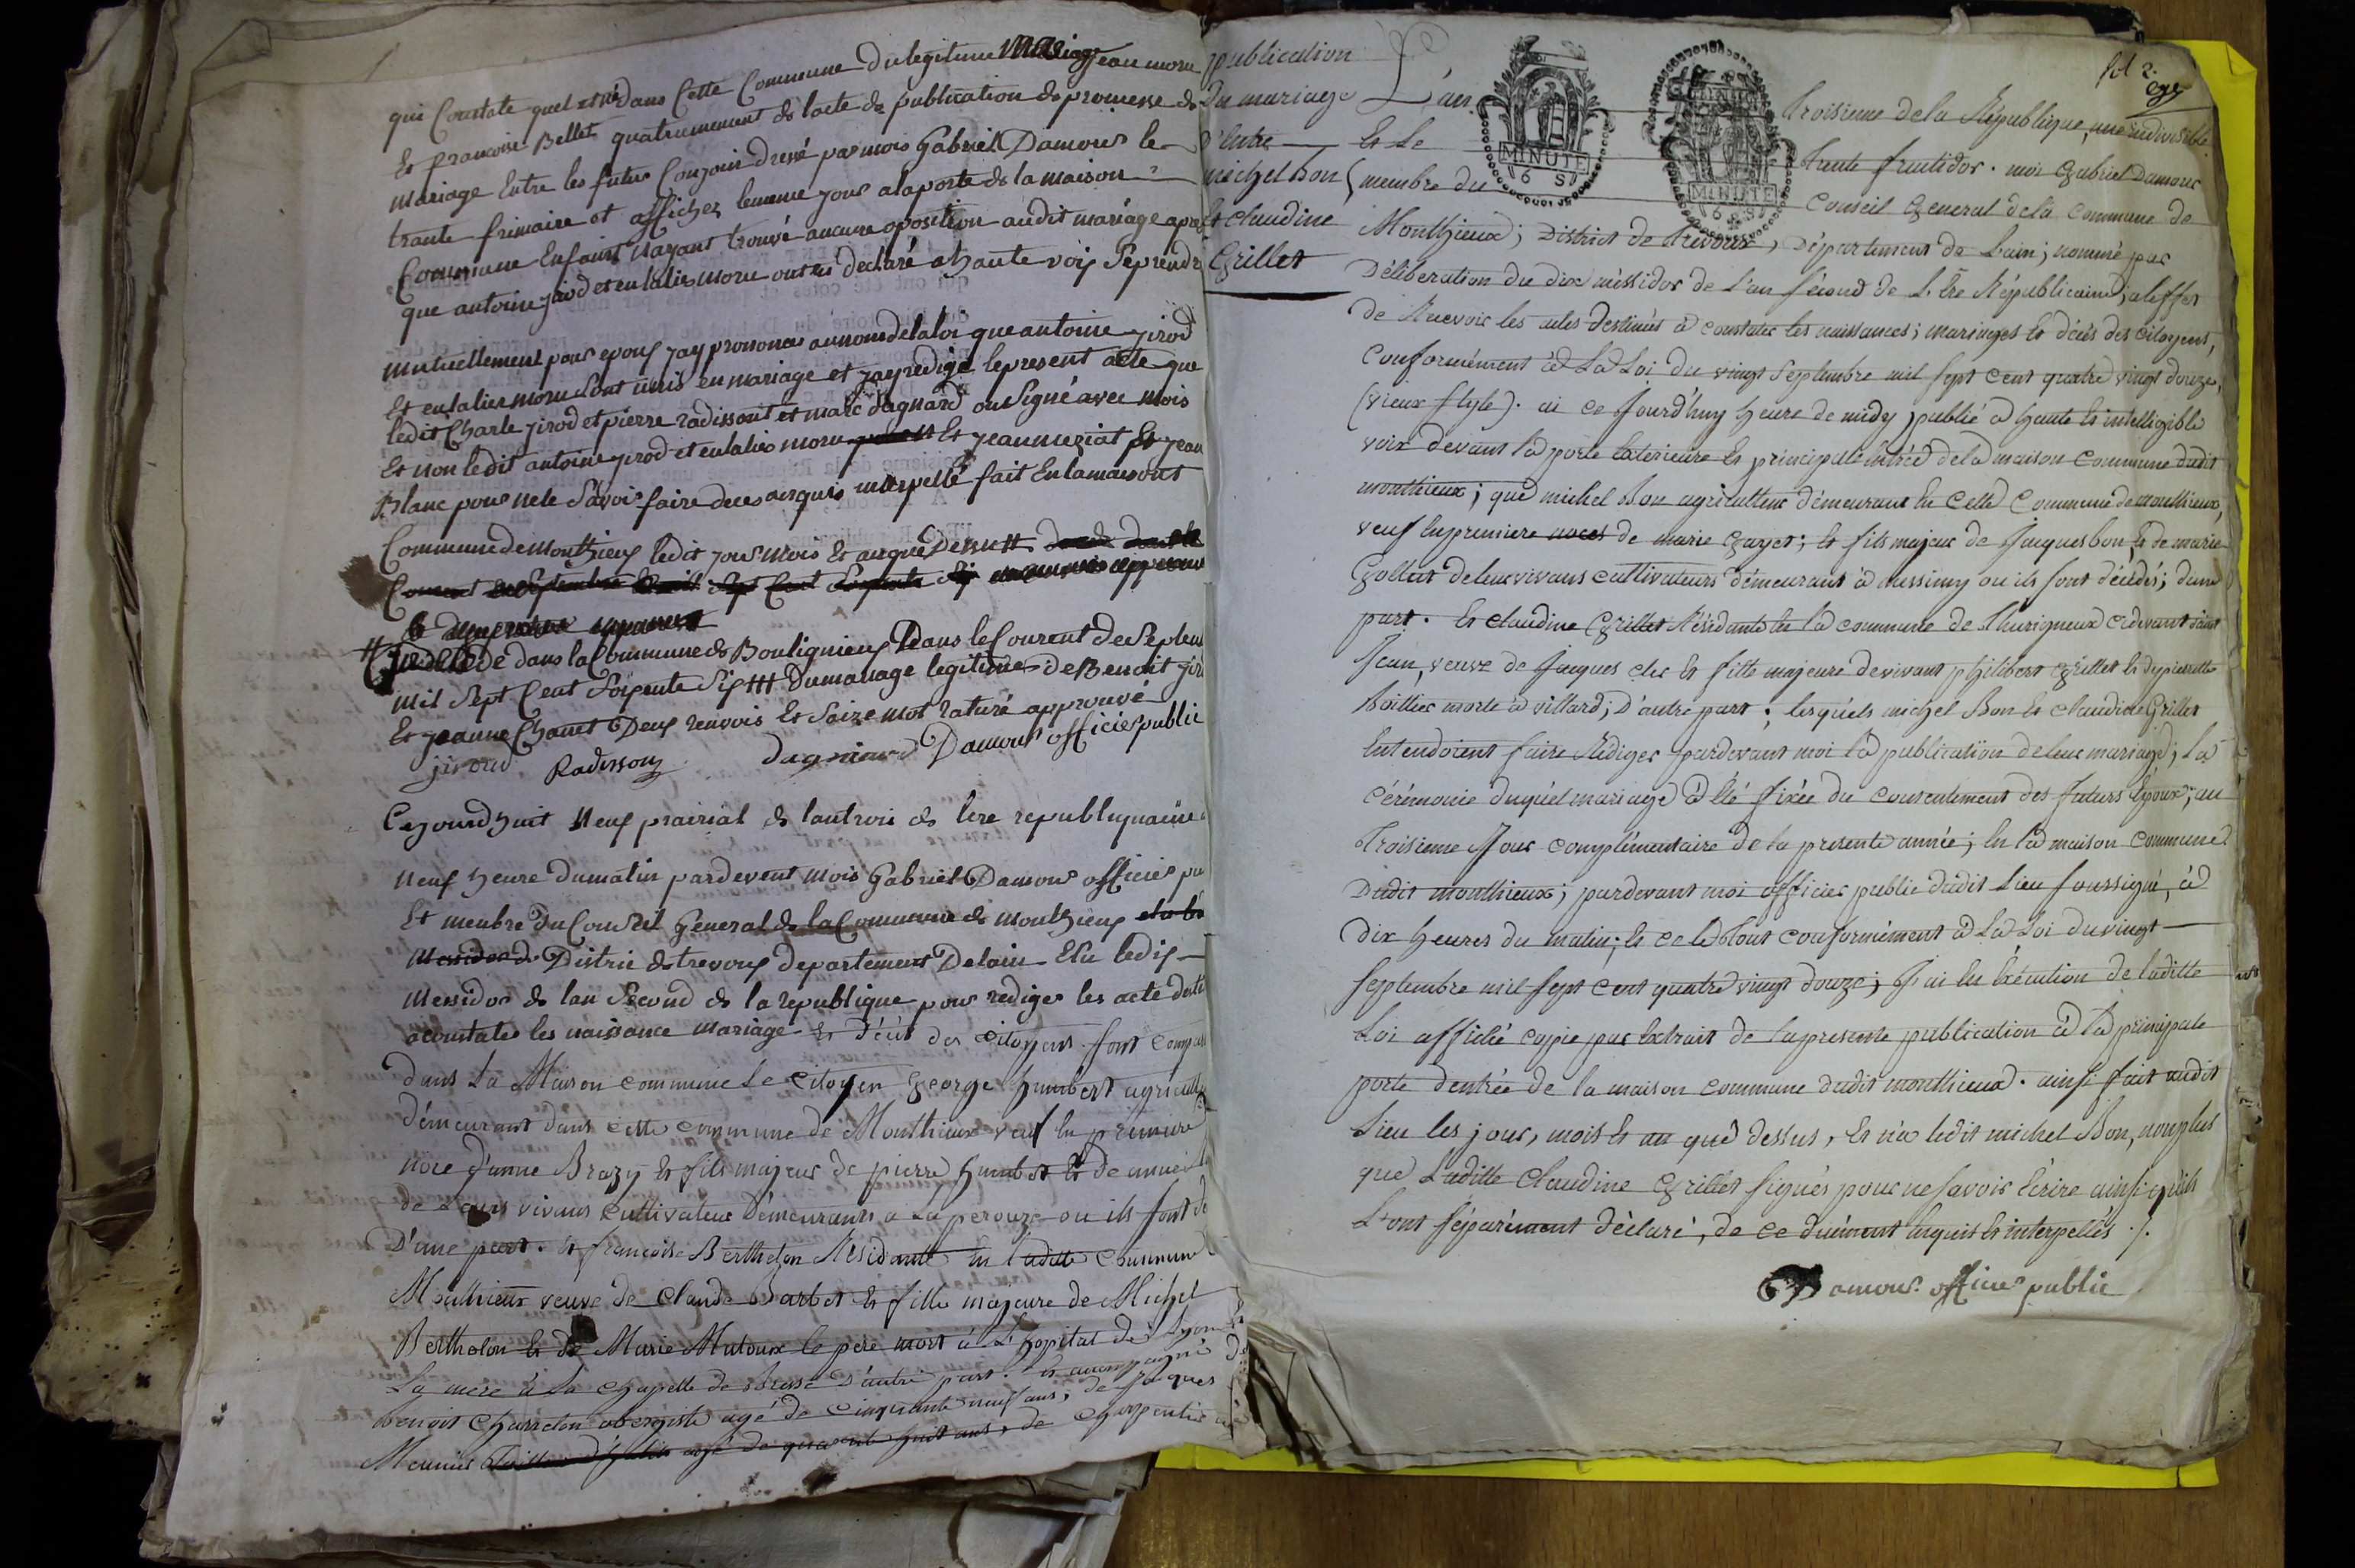 qui Constate quel et né dans Cette Commune du legitime Mariage jean moru
Et francoise Bellet quatriemement de lacte de publication de promesse de
Mariage Entre les futur Conjoin dressé par mois Gabriel Damour le
trante frimaire et afficher lememe jour a laporte de la maison
Commune Enfaint Nayant trouvé aucune oposition audit mariage apres
que antoine jirod et eulalie moru ont declaré a haute voix Seprendre
mutuellement pour epoux jay prononcé aunom de la loi que antoine jirod
Et eulalie moru Sont unis en mariage et jay redigé lepresent acte que
ledit Charle jirod et pierre radissont et marc dagnard on Signé avec mois
Et non ledit antoine jirod et eulalie moru Et jean meziat Et jean
Blanc pour nele Savoir faire deces enquis interpellé fait En lamaisont
Commune de Monthieux ledit jour mois Et anque Dessu #
Courent
# dans la Commune de Bouligneux Dans le Courent de Septem
mil Sept Cent Soixente Six ### Dumariage legitime de Benoit jiro
Et jeanne Chanet Deux renvois Et Saize mot raturé approuvé
jiroud Radisson dagniard Damour officier public
Cejourdhuit Neuf prairial de lantrois de lere republiquaine
Neuf heure dumatin pardevent mois Gabriel Damour officier pu
Et menbre du Conseil General de la Commune de Monthieux
Messidor de District de trevoux departement Delain Elu ledix
Messidor de lan Second de la republique pour rediger les acte desti
aconstater les naissance mariage Et décès des citoyens sont compar
dans La Maison commune Le Citoyen George humbert agricult
démeurant dans cette commune de Monthieux veuf En premiere
noce d'anne Brazy Et fils majeur de pierre humbert Et de anne
de Leurs vivans cultivateur Démeurants a La perouze ou ils sont dé
D'une part. Et francoise Berthelon Résidante En Laditte Commune
Monthieux veuve de Claude Barbet Et fille majeure de Michel
Berthelon Et de Marie Matoux le pere mort à L'hopital de Lyon Et
La mere à La chapelle de D'autre part. Et accompagné de
benoit Charreton obergiste agé de cinquante neuf ans, de Jaques
Meunier agé de quarente huit ans, de Charpentier
fol 2.
publication
Du mariage
D'Entre
michel Bon
Et claudine
Grillet
L'an troisieme de la République, une indivisible
Et Le trente fructidor. moi Gabriel Damour
membre du Conseil General de la commune de
MINUTE
6 S
MINUTE
6 S
Monthieux; District de Trevoux, Département de Lain; nommé par
Déliberation du dix messidor de l'an second de L'Ere Républicaine; aleffet
de Recevoir les actes destinés à constater les naissances; mariages Et décès des citoyens,
Conformément à La Loi du vingt Septembre mil sept cent quatre vingt douze,
(vieux style). ai ce Jourd'huy heure de midy publié à haute Et intelligible
voix devant la porte Exterieure Et principale Entrée de la maison Commune dudit
monthieux; que michel Bon agriculteur démeurant En cette Commune de monthieux,
veuf En premiere noces de marie Gayet; Et fils majeur de Jaques bon Et de marie
Gollet de leur vivans cultivateurs démeurant à mussimy ou ils sont décédés; dune
part. Et claudine Grillet Résidante En la commune de thurigneux cidevant Saint
Jean, veuve de Jaques clec Et fille majeure devivant philibert Grillet Et de pierrette
baillier morte à villard; D'autre part; lesquels michel Bon Et Claudine Grillet
Entendoient faire Rédiger pardevant moi la publication de leur mariage; La
cérémonie duquel mariage à Eté fixée du consentement des futurs Epoux; au
Troisieme Jour complémentaire de la presente année; En la maison commune
Dudit monthieux; pardevant moi officier public dudit Lieu soussigné, à
Dix heures du matin; Et ce le tout conformément à La Loi du vingt
Septembre mil sept cent quatre vingt douze; J'ai En Exécution de laditte
Loi affiché copie par Extrait de la presente publication à la principale
porte dentrée de la maison commune dudit monthieux. ainsi fait audit
Lieu les jour, mois Et an que dessus, Et n'a ledit michel Bon, nonplus
que Laditte Claudine Grillet signés pour ne savoir Ecrire ainsi qu'ils
L'ont séparément déclaré, de ce duément enquis Et interpellés ./.
Damour officier public